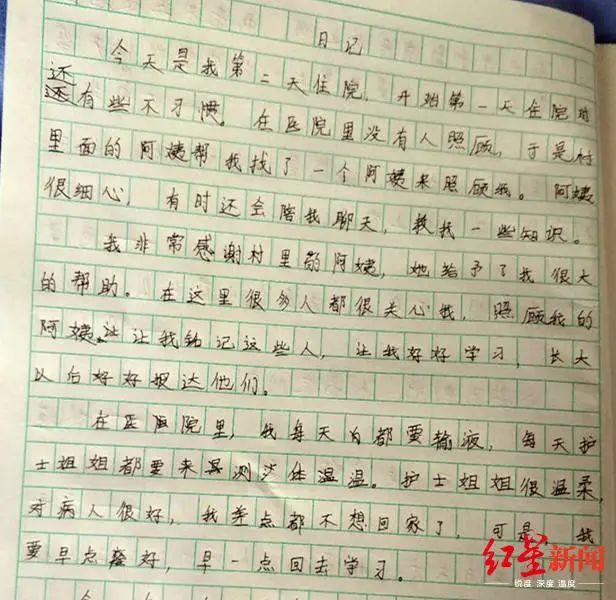 日记
今天是我第二天住院，开始第一天住院时
还有些不习惯。在医院里没有人照顾，于是村
里面的阿姨帮我找了一个阿姨来照顾我。阿姨
很细心，有时还会陪我聊天，教我一些知识。
我非常感谢村里的阿姨，她给予了我很大
的帮助。在这里很多人都很关心我，照顾我的
阿姨让我铭记这些人，让我好好学习，长大
以后好好报达他们。
在医院里，我每天都要输液，每天护
士姐姐都要来测体温。护士姐姐很温柔，
对病人很好，我差点都不想回家了，可是我
要早点好，早一点回去学习。
红星新闻
锐度 深度 温度